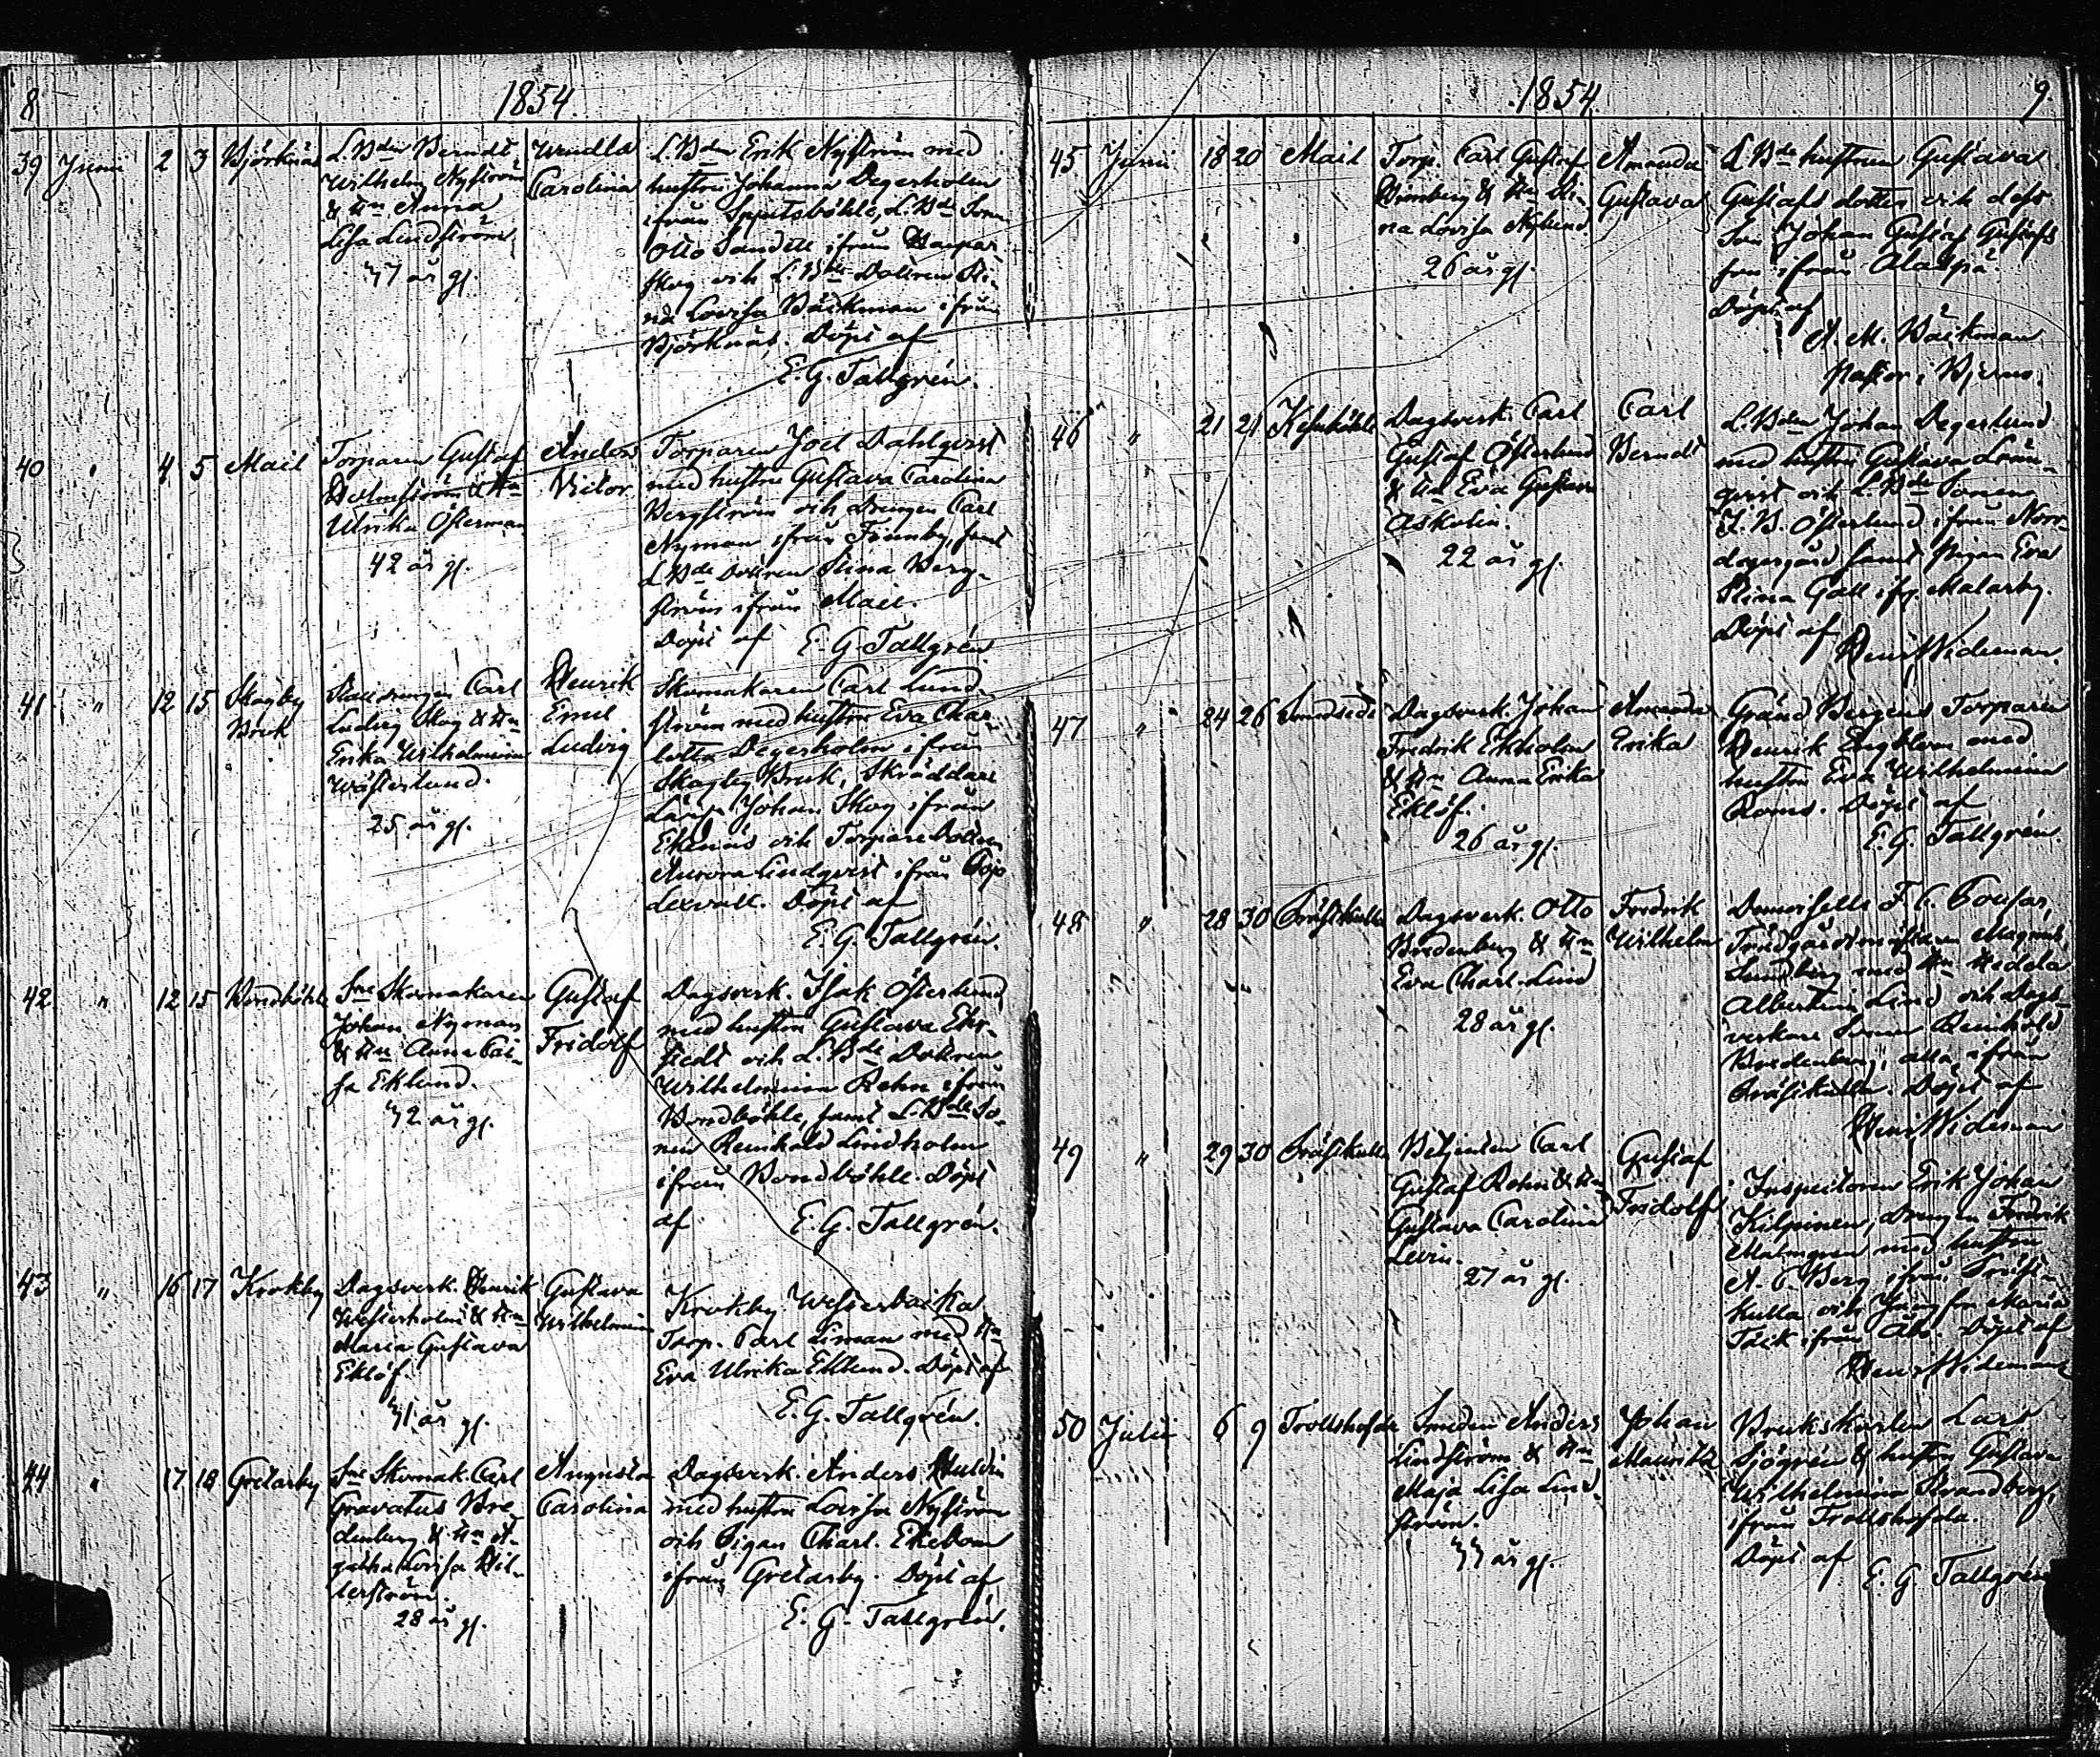 8
1854
39 Junii 2 3 Björknäs
L. Bden Berndt
Wilhelm Nyström
& Hu Anna
Lisa Lindström
37 år gl.
Wendla
Carolina
L. Bden Erik Nyström med
hustru Johanna Degerholm
ifrån Sppitsböhle, L. Bde Sonen
Otto Sandell ifrån
skog och L. Bde Dottren Sti-
na Lovisa Bäckman ifrån
Björknäs. Döpt af
E. G. Tallgrén.
40 " 4 5 Mail
Torparen Gustaf
Holmström & Hu
Ulrika Österman
42 år gl.
Anders
Victor
Torparen Joel Dahlqvist
med hustru Gustava Carolina
Bergström och Drengen Carl
Nyman ifrån Finnby, samt
L Bde Dottren Stina Berg-
ström ifrån Mail.
Döpt af E. G. Tallgrén
41 " 12 15 Skogby
Bruk
Stalldrengen Carl
Ludvig Skog & Hu
Erika Wilhelmina
Westerlund.
25 år gl.
Henrik
Emil
Ludvig
Skomakaren Carl Lund-
ström med hustru Eva Char-
lotta Degerholm ifrån
Skogby Bruk, Skräddare
Lärl. Johan Skog ifrån
Ekenäs och Torpare Dottren
Aurora Lindqvist ifrån Pojo
Lexvall. Döpt af
E. G. Tallgrén.
42 " 12 15 Bondböhle
Sne Skomakaren
Johan Nyman
& Hu Anna Cai-
sa Eklund.
32 år gl.
Gustaf
Fridolf
Dagsverk. Isak Österlund
med hustru Gustava Ek-
stedt och L. Bde Dottren
Wilhelmina Rehn ifrån
Bondböhle, samt L. Bde So-
nen Reinhold Lindholm
ifrån Bondböhle. Döpt
af E. G. Tallgrén.
43 " 16 17 Krokby
Dagsverk. Henrik
Westerholm & Hu
Maria Gustava
Eklöf.
31 år gl.
Gustava
Wilhelmina
Krokby Westerbacka
Torp. Carl Liman med Hu
Eva Ulrika Eklund. Döpt af
E. G. Tallgrén.
44 " 17 18 Gretarby
Sne Skomak. Carl
Gravatus Bre-
denberg & Hu A-
gatha Lovisa Hil-
lerström.
28 år gl.
Augusta
Carolina
Dagsverk. Anders Huldin
med hustru Lovisa Nyström
och Pigan Charl. Ekebom
ifrån Gretarby. Döpt af
E. G. Tallgrén.
1854.
9.
45 Junii 18 20 Mail
Torp. Carl Gustaf
Grönberg & Hu Sti-
na Lovisa Nylund
26 år gl.
Amanda
Gustava
L Bde hustrun Gustava
Gustafs dotter och dess
Son Johan Gustaf Gustafs
son ifrån
Döpt af
A. M. Bäckman
Pastor i Bjerno.
46 " 21 21
Dagsverk. Carl
Gustaf Österlund
& Hu Eva Gustava
Askolin.
22 år gl.
Carl
Berndt
L. Bden Johan Degerlund
med hustru Gustava Lön-
qvist och L. Bde Sonen
J. B. Österlund ifrån Norr-
dagergård samt Pigan Eva
Stina Gall ifr. Malarby.
Döpt af
Henr Wideman.
47 " 24 26
Dagsverk. Johan
Fredrik Ekholm
& Hu Anna Erika
Eklöf.
26 år gl.
Amanda
Erika
Gränd Bergens Torparen
Henrik Engblom med
hustru Eva Wilhelmina
Roms. Döpt af
E. G. Tallgrén.
48 " 28 30 Präskulla
Dagsverk. Otto
Bredenberg & Hu
Eva Charl. Lind
28 år gl.
Fredrik
Wilhelm
Demoiselle F. C.
Trädgårdsmästaren Magnus
Lundberg med Hu Hedda
Albertina Lind och Dags-
verkare Sonen Reinhold
Bredenberg, alla ifrån
Präskulla. Döpt af
Henr Wideman
49 " 29 30 Präskulla
Betjenten Carl
Gustaf Rehn & Hu
Gustava Carolina
Levin.
27 år gl.
Gustaf
Fridolf
Inspectoren Erik Johan
Kilpinen, Drengen Fredrik
Malmgren med hustru
A. C. Berg ifrån Präst-
kulla och Jungfru Maria
Täck ifrån Åbo. Döpt af
Henr Wideman
50 Julii 6 9 Trollshofda
Smeden Anders
Lindström & Hu
Maja Lisa Lind-
ström.
33 år gl.
Johan
Mauritz
Brukskarlen Lars
Sjögrén & hustru Gustava
Wilhelmina Strandberg,
ifrån Trollshofda.
Döpt af
E. G. Tallgrén